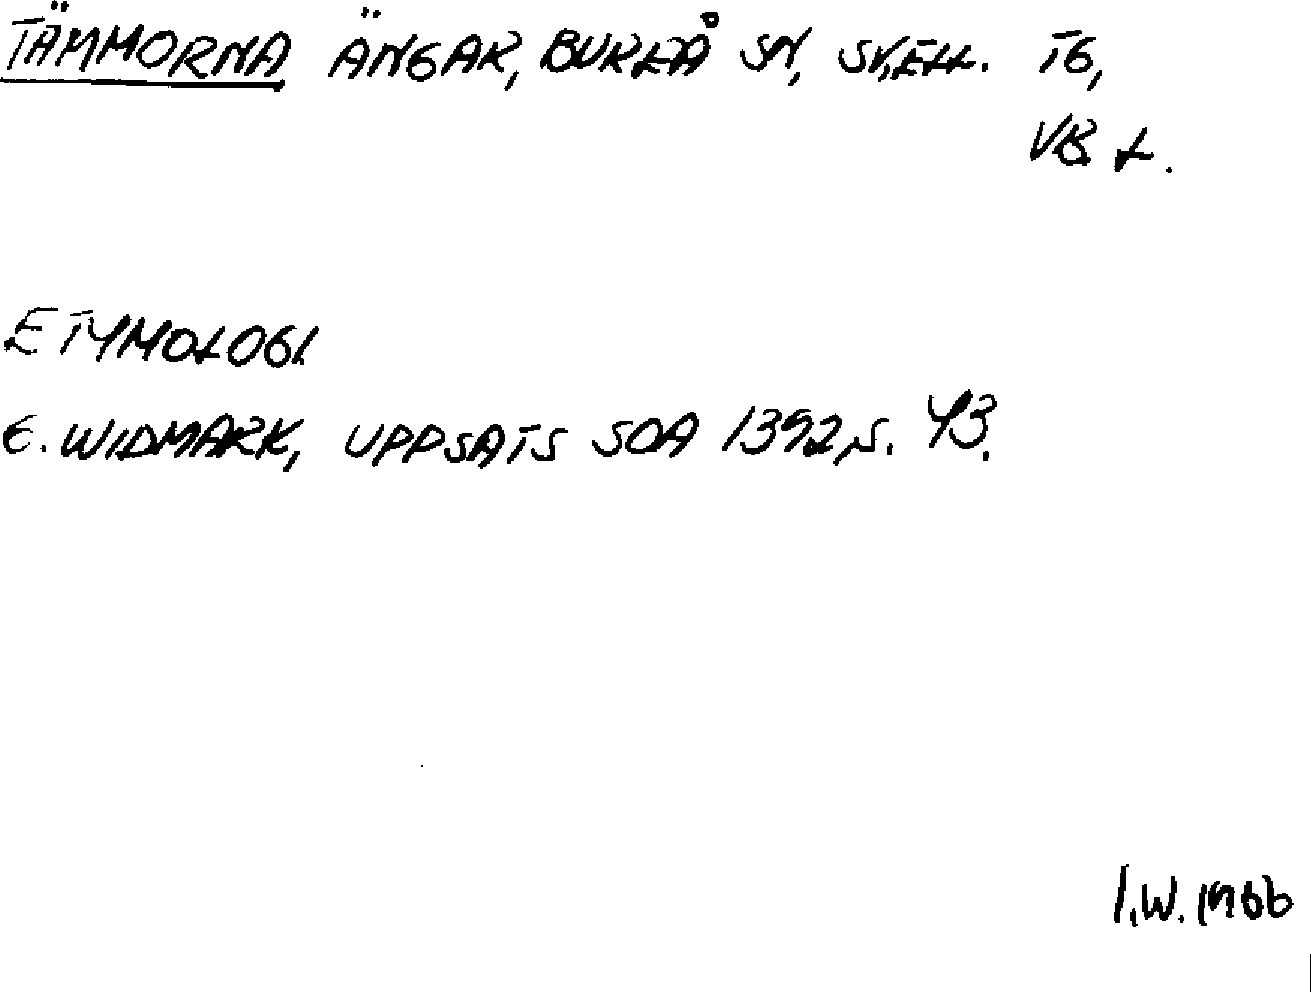 TÄMMORNA ÄNGAR, BUREÅ SN, SKELL. TG,
VB L.
ETYMOLOGI
E. WIDMARK, UPPSATS SOA 1392, S. 43.
I.W. 1966